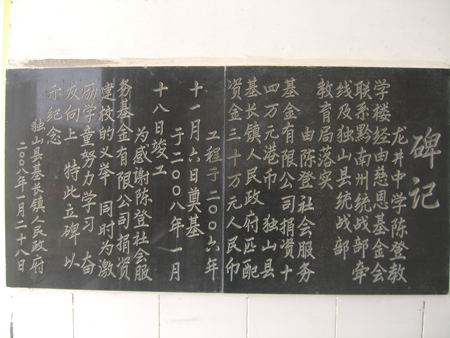 碑记
龙井中学陈登教
学楼经由慈恩基金会
联系黔南州统战部牵
线及独山县统战部
教育局落实
由陈登社会服务
基金有限公司捐资十
四万元港币 独山县
基长镇人民政府匹配
资金三十万元人民币
工程于二00六年
十一月六日奠基
于二00八年一月
十八日竣工
为感谢陈登社会服
务基金有限公司捐资
建校的义举 同时为激
励学童努力学习 奋
发向上 特此立碑 以
示纪念
独山县基长镇人民政府
二00八年一月二十八日